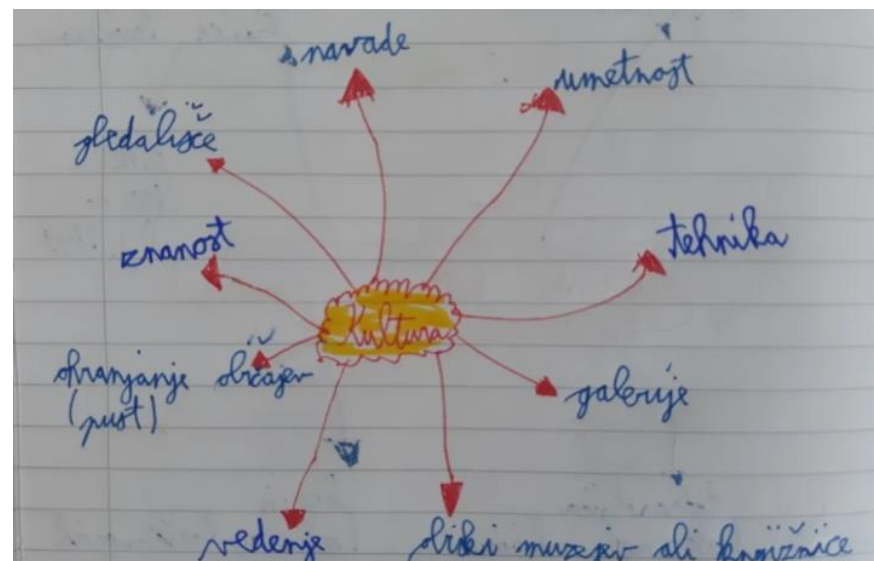 navade
umetnost
gledališče
znanost
tehnika
Kultura
ohranjanje običajev
(pust)
galerije
vedenje
obiski muzejev ali knjižnice